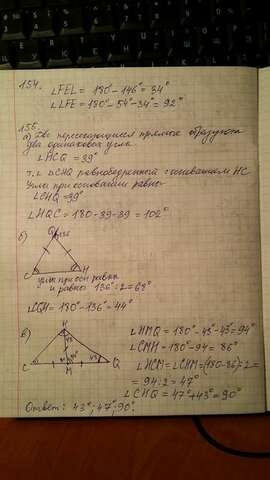 154.
∠FEL = 180°-146° = 34°
∠LFE = 180°-54°-34° = 92°
155.
а) Две пересекающиеся прямые образуют
два одинаковых угла
∠HCQ = 39°
т.к. ∆CHQ равнобедренный с основанием HC
Углы при основании равны
∠CHQ = 39°
∠HQC = 180-39-39 = 102°
б)
136
C
H
углы при осн равны
и равны 136°:2 = 68°
∠CQH = 180°-136° = 44°
в)
H
43
C
M
43
Q
∠HMQ = 180°-43°-43° = 94°
∠CMH = 180°-94 = 86°
∠HCM = ∠CHM = (180-86):2 =
= 94:2 = 47°
∠CHQ = 47°+43° = 90°
Ответ: 43°; 47°; 90°